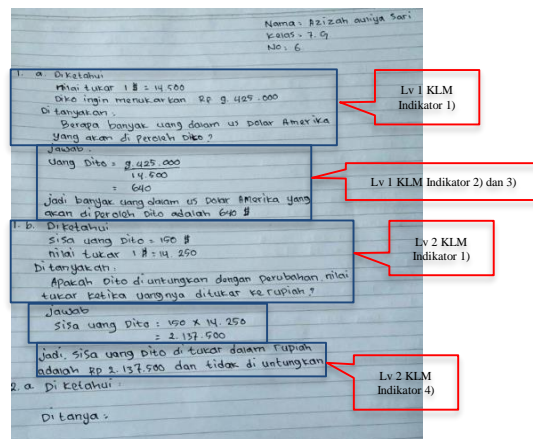 Nama : Azizah auliya Sari
Kelas : 7.G
No : 6
1. a. Diketahui
nilai tukar 1 $ = 14.500
Diko ingin menukarkan Rp 9.425.000
Ditanyakan :
Berapa banyak uang dalam us Dolar Amerika
yang akan di peroleh Diko ?
Jawab :
Uang Dito = 9.425.000
14.500
= 640
jadi banyak uang dalam us Dolar Amerika yang
akan diperoleh Dito adalah 640 $
1. b. Diketahui
sisa uang Dito = 150 $
nilai tukar 1 $ = 14.250
Ditanyakan :
Apakah Dito di untungkan dengan perubahan nilai
tukar ketika uangnya ditukar ke rupiah ?
Jawab
sisa uang Dito : 150 x 14.250
= 2.137.500
jadi, sisa uang Dito di tukar dalam rupiah
adalah Rp 2.137.500 dan tidak di untungkan
2. a Diketahui :
Ditanya :
Lv 1 KLM
Indikator 1)
Lv 1 KLM Indikator 2) dan 3)
Lv 2 KLM
Indikator 1)
Lv 2 KLM
Indikator 4)